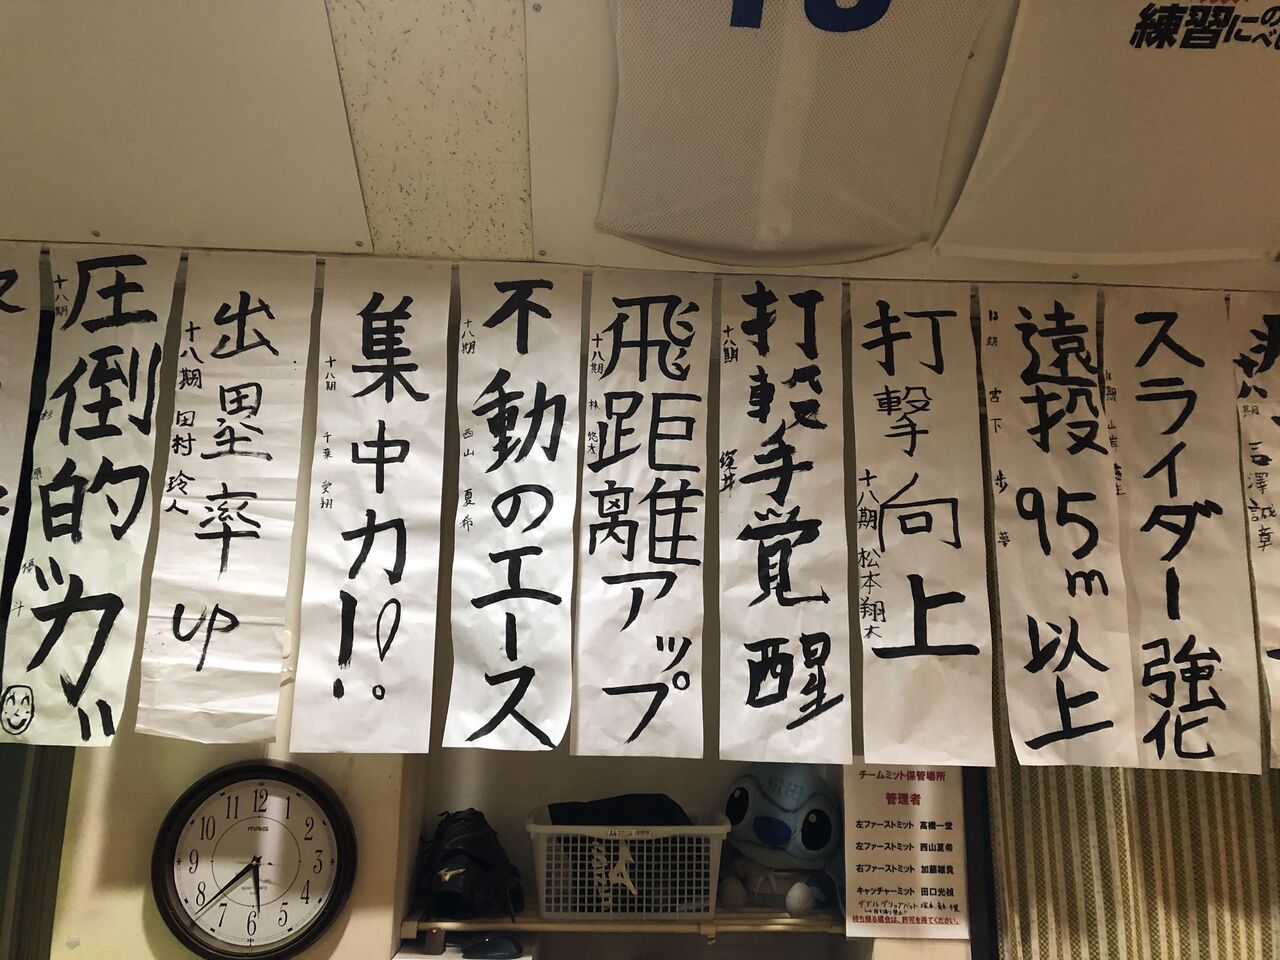 練習に
スライダー強化
遠投95m以上
宮下歩夢
打撃向上
十八期 松本翔太
打撃手覚醒
十八期
飛距離アップ
十八期 林 悠太
不動のエース
十八期 西山夏希
集中力!!
十八期 千葉 愛翔
出塁率up
十八期 田村 玲人
圧倒的"力"
十八期 杉原 優斗
吉澤 誠章
12
1
2
3
4
5
6
7
8
9
10
11
MAG
チームミット保管場所
管理者
左ファーストミット 高橋一堂
左ファーストミット 西山夏希
右ファーストミット 加藤雄貴
キャッチャーミット 田口光禎
持ち帰る場合は、許可を得てください。